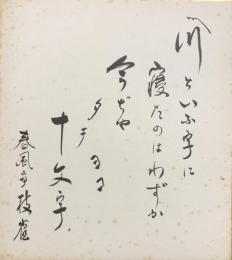 〽川といふ字に
寝たのはわずか
今ぢや
タテヨコ
十文字
春風亭枝雀